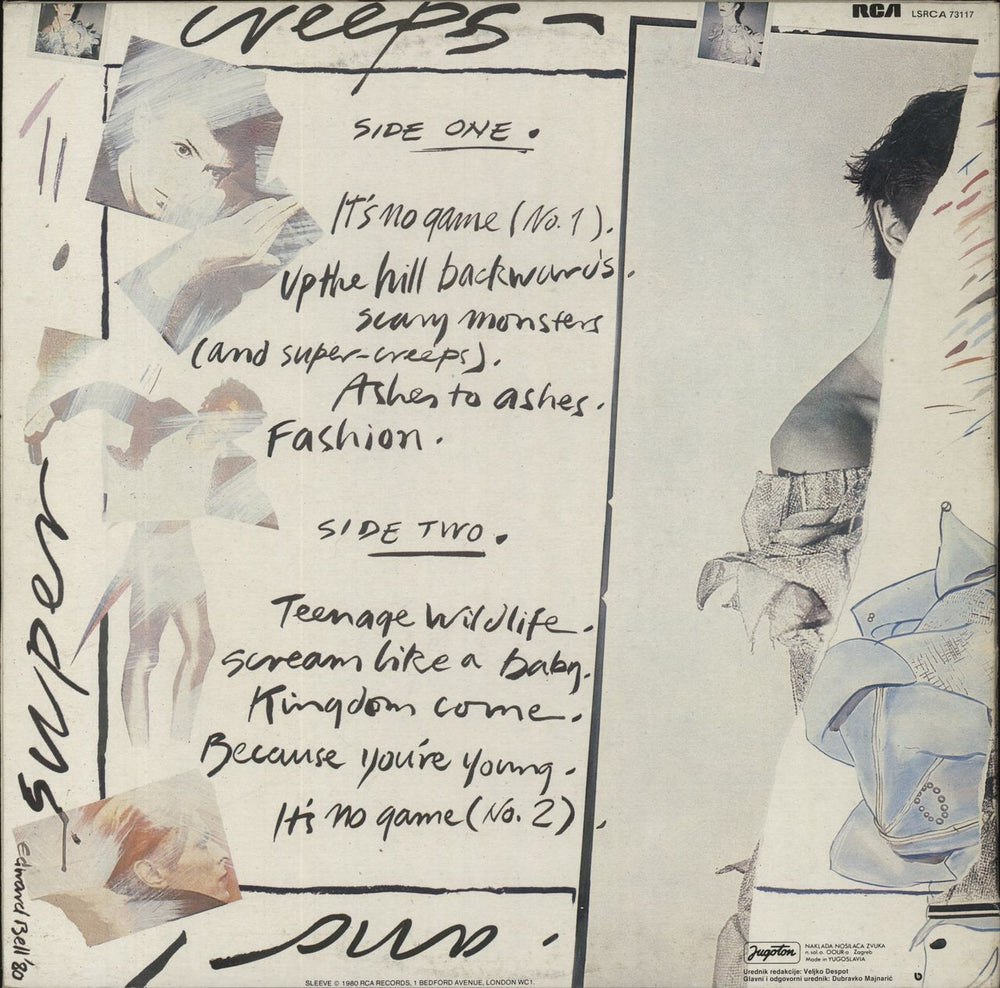 creeps -
RCA LSRCA 73117
SIDE ONE.
It's no game (No. 1).
Up the hill backwards.
scary monsters
(and super-creeps).
Ashes to ashes.
Fashion.
SIDE TWO.
Teenage Wildlife.
scream like a baby.
Kingdom come.
Because you're young.
It's no game (No. 2).
super
Edward Bell '80
and.
Jugoton
NAKLADA NOSILACA ZVUKA
n.sol.o. OOUR-a Zagreb
Made in YUGOSLAVIA
Urednik redakcije: Veljko Despot
Glavni i odgovorni urednik: Dubravko Majnarić
SLEEVE © 1980 RCA RECORDS, 1 BEDFORD AVENUE, LONDON WC1.